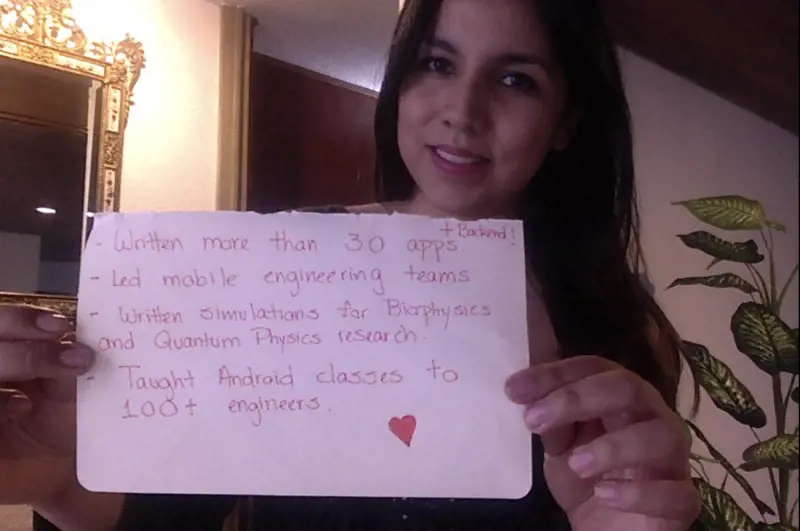 - Written more than 30 apps + Backend!
- Led mobile engineering teams
- Written simulations for Biophysics
and Quantum Physics research.
- Taught Android classes to
100+ engineers.